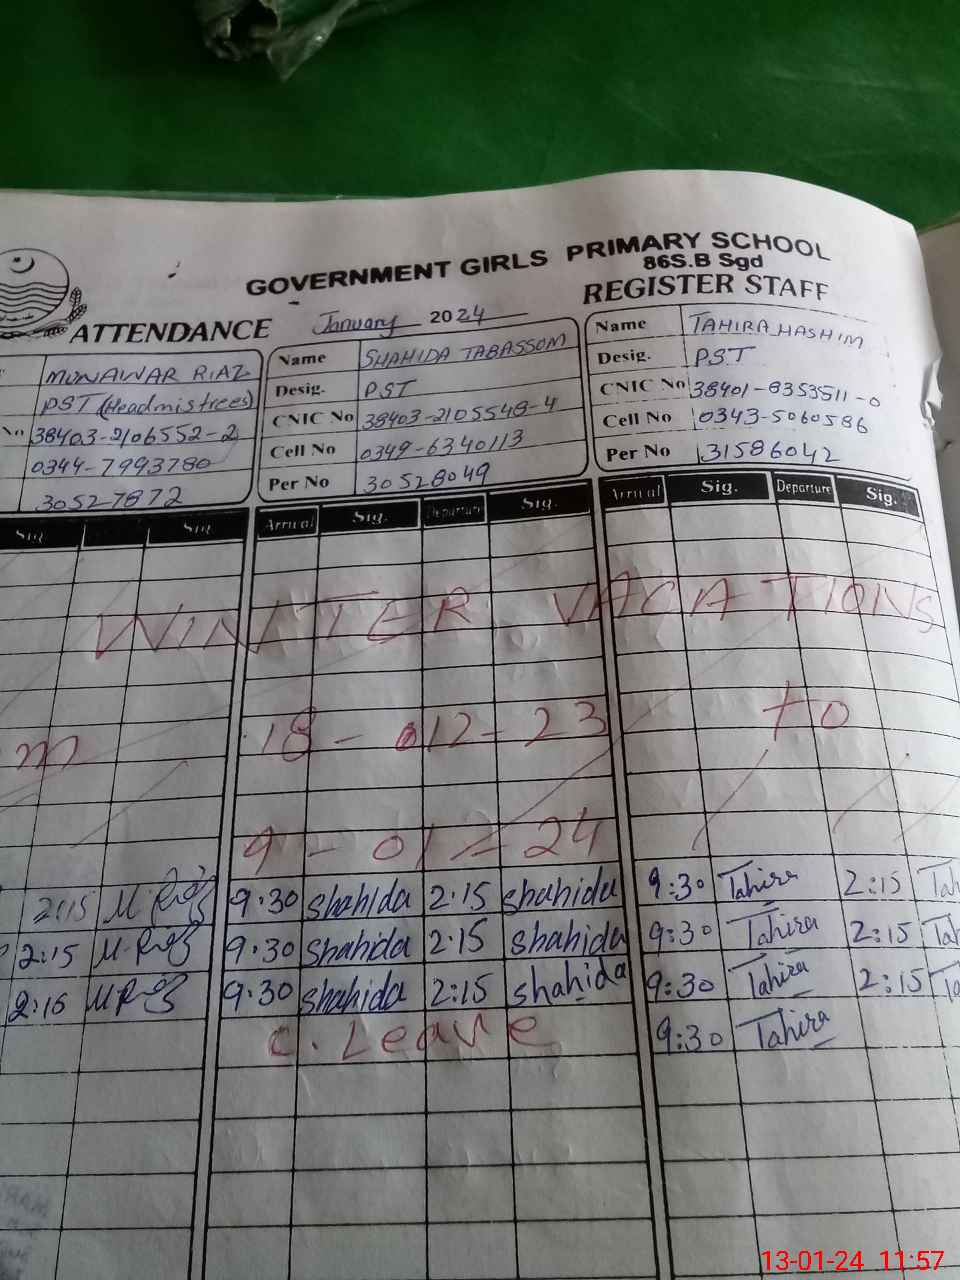 GOVERNMENT GIRLS PRIMARY SCHOOL
86S.B Sgd
ATTENDANCE January 2024 REGISTER STAFF
MUNAWAR RIAZ
PST (Headmistrees)
No 38403-2106552-2
0344-7993780
30527872
Name SHAHIDA TABASSOM
Desig. PST
CNIC No 38403-2105548-4
Cell No 0349-6340113
Per No 30528049
Name TAHIRA HASHIM
Desig. PST
CNIC No 38401-8353511-0
Cell No 0343-5060586
Per No 31586042
Sig. Sig. Arrival Sig. Departure Sig. Arrival Sig. Departure Sig.
WINTER VACATIONS
m 18-012-23 to
9-01-24
2:15 M.Riaz 9:30 Shahida 2:15 Shahida 9:30 Tahira 2:15 Tah
2:15 M.Riaz 9:30 Shahida 2:15 Shahida 9:30 Tahira 2:15 Ta
2:15 M.Riaz 9:30 Shahida 2:15 Shahida 9:30 Tahira 2:15 Ta
C. Leave 9:30 Tahira
13-01-24 11:57